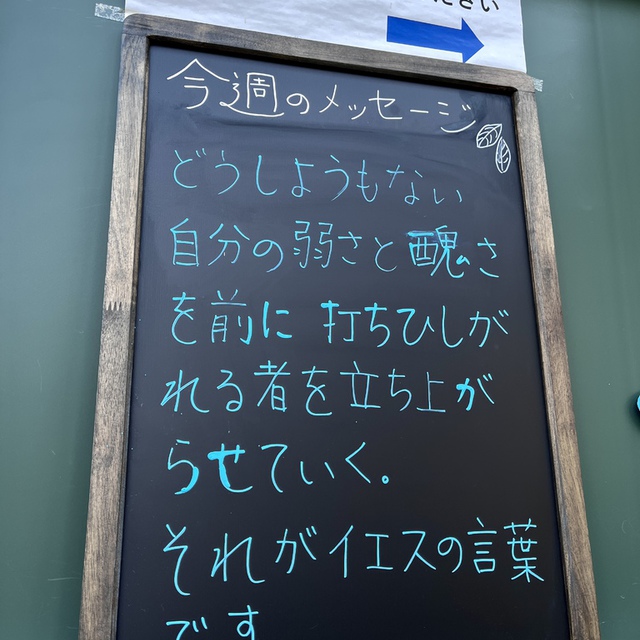 ださい
今週のメッセージ
どうしようもない
自分の弱さと醜さ
を前に打ちひしが
れる者を立ち上が
らせていく。
それがイエスの言葉
です